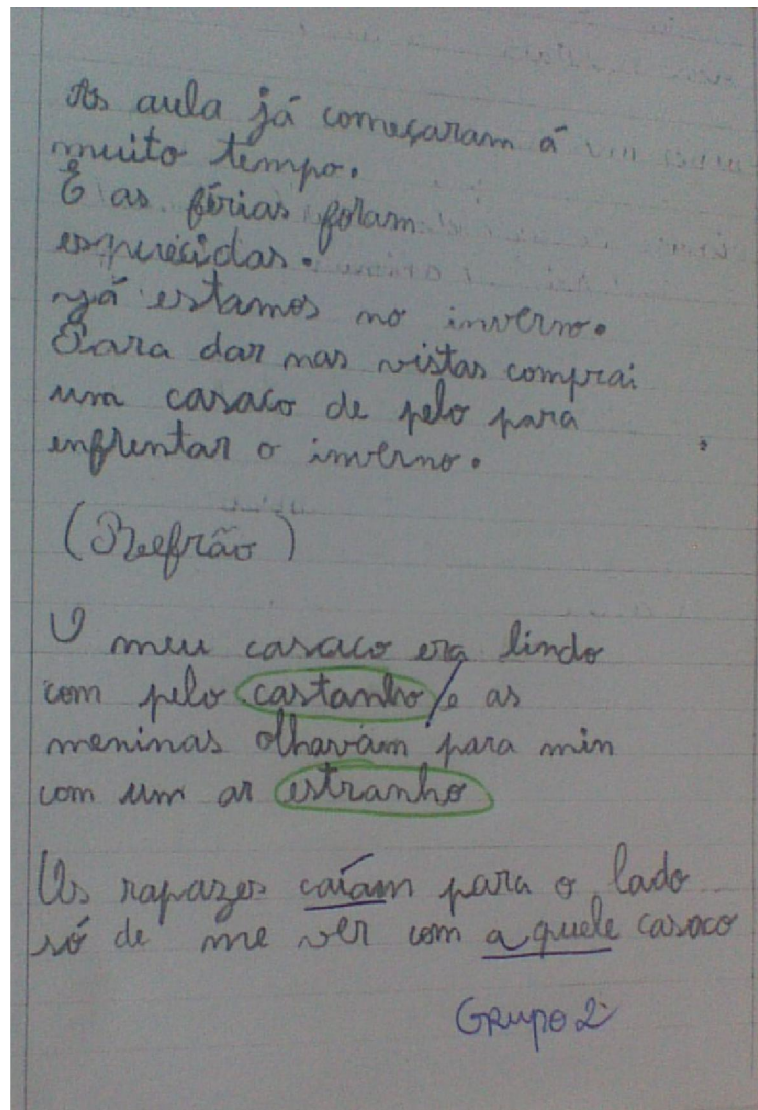 As aula já começaram á
muito tempo.
E as férias foram
esquecidas.
Já estamos no inverno.
Para dar nas vistas comprai
um casaco de pelo para
enfrentar o inverno.
(Reefrão)
O meu casaco era lindo
com pelo castanho/e as
meninas olhavam para min
com um ar estranho
Os rapazes caíam para o lado
só de me ver com a quele casaco
Grupo 2